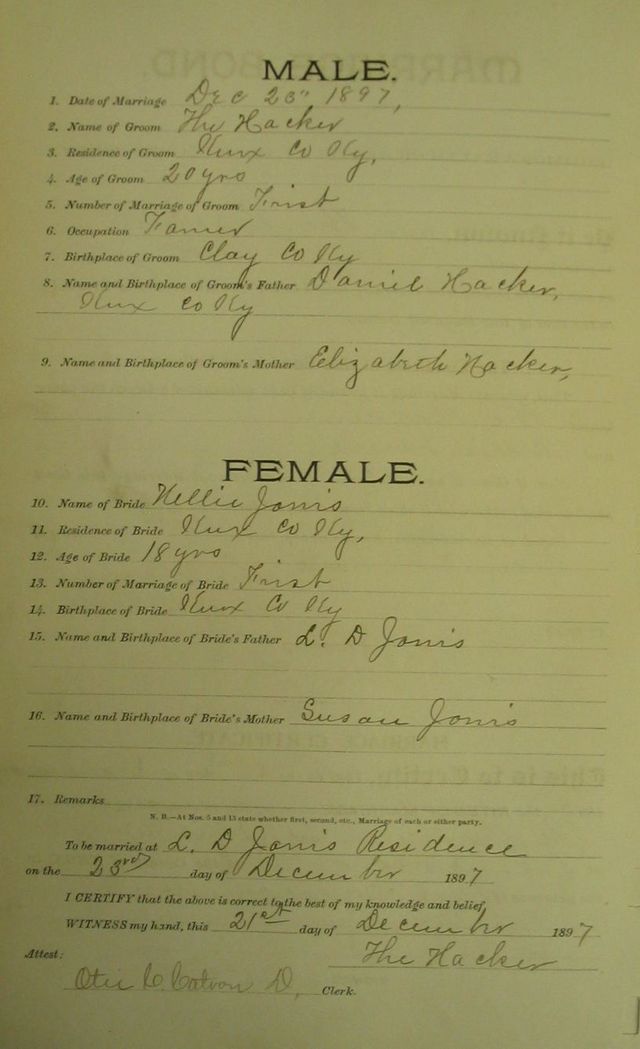 MALE.
1. Date of Marriage Dec 23" 1897,
2. Name of Groom The Hacker
3. Residence of Groom Knox Co Ky,
4. Age of Groom 20 yrs
5. Number of Marriage of Groom First
6. Occupation Farmer
7. Birthplace of Groom Clay Co Ky
8. Name and Birthplace of Groom's Father Daniel Hacker,
Knox Co Ky
9. Name and Birthplace of Groom's Mother Elizabeth Hacker,
FEMALE.
10. Name of Bride Nellie Jonis
11. Residence of Bride Knox Co Ky,
12. Age of Bride 18 yrs
13. Number of Marriage of Bride First
14. Birthplace of Bride Knox Co Ky
15. Name and Birthplace of Bride's Father L. D Jonis
16. Name and Birthplace of Bride's Mother Susan Jonis
17. Remarks
N. B.—At Nos. 5 and 13 state whether first, second, etc., Marriage of each or either party.
To be married at L. D Jonis Residence
on the 23rd day of December 1897
I CERTIFY that the above is correct to the best of my knowledge and belief,
WITNESS my hand, this 21st day of December 1897
Attest: The Hacker
D, Clerk.